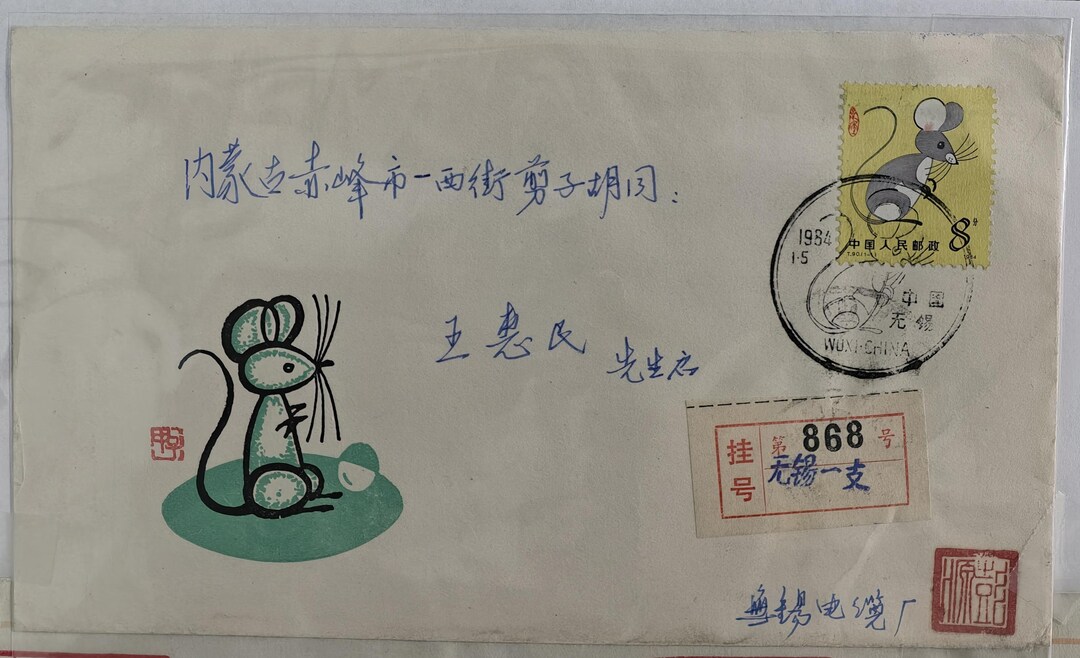 内蒙古赤峰市一西街剪子胡同：
8分
中国人民邮政
1984
1984
1·5
中国
无锡
WUXI·CHINA
王惠民
先生启
挂号
第868号
无锡一支
無锡电缆厂